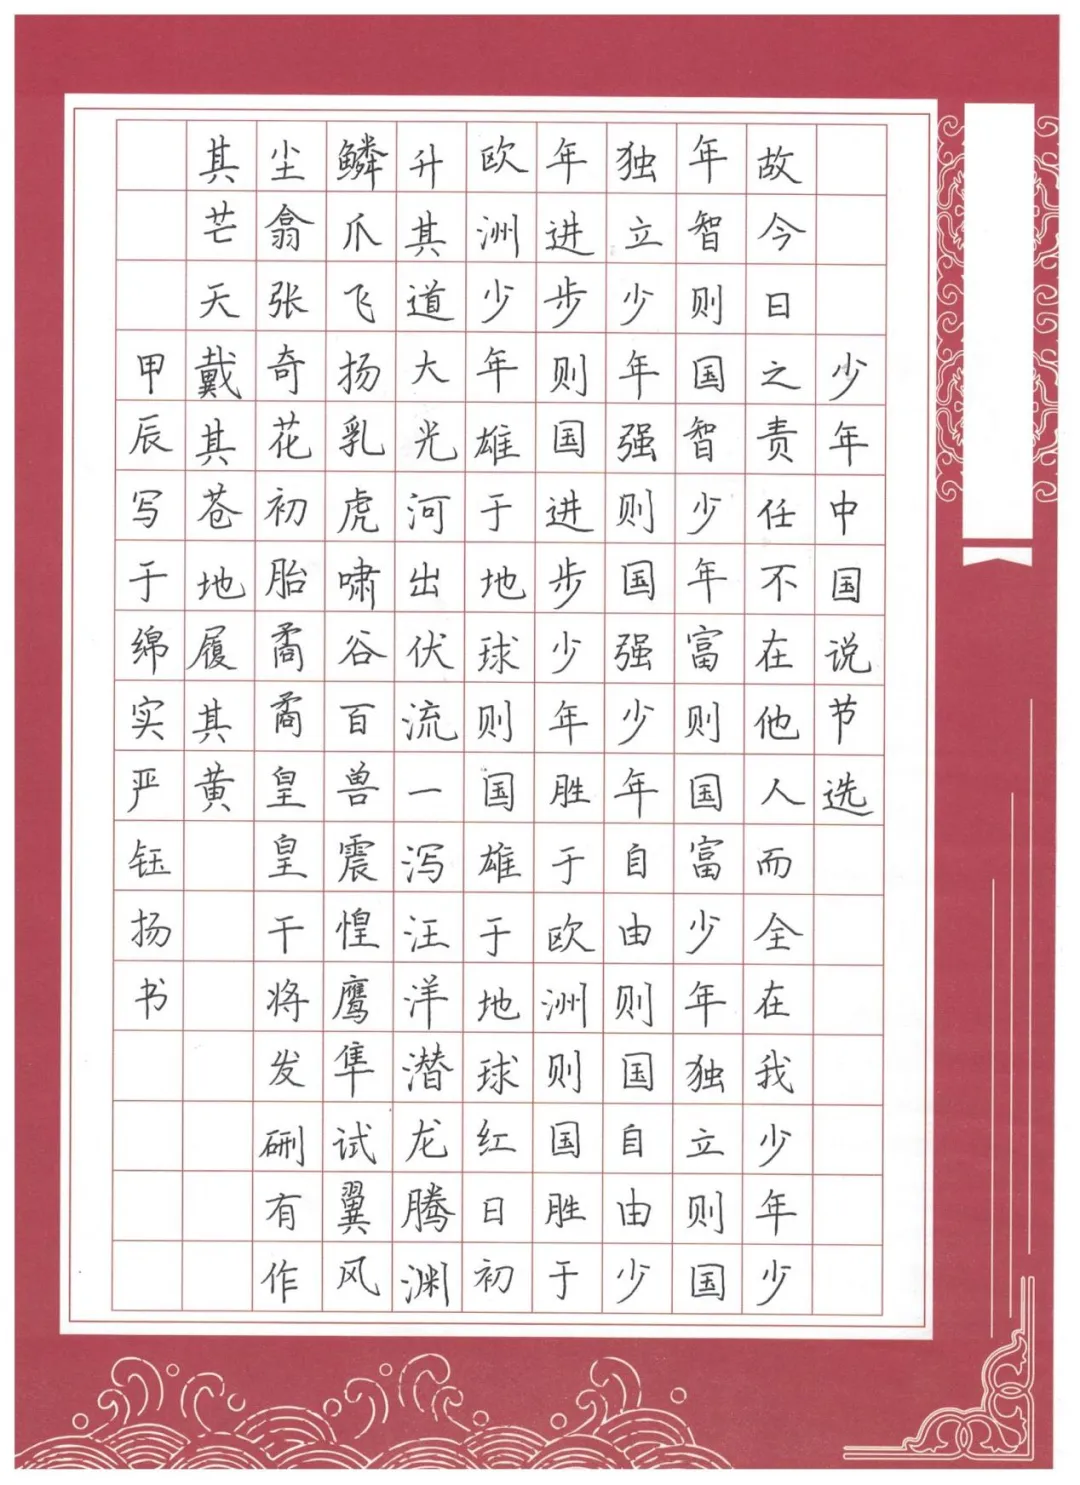 少年中国说节选
故今日之责任不在他人而全在我少年少
年智则国智少年富则国富少年独立则国
独立少年强则国强少年自由则国自由少
年进步则国进步少年胜于欧洲则国胜于
欧洲少年雄于地球则国雄于地球红日初
升其道大光河出伏流一泻汪洋潜龙腾渊
鳞爪飞扬乳虎啸谷百兽震惶鹰隼试翼风
尘翕张奇花初胎矞矞皇皇干将发硎有作
其芒天戴其苍地履其黄
甲辰写于绵实严钰扬书